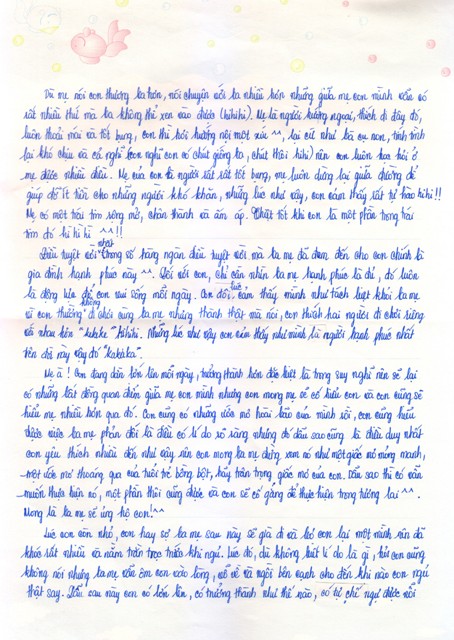 Dù mẹ nói con thương ba hơn, nói chuyện với ba nhiều hơn nhưng giữa mẹ con mình vẫn có
rất nhiều thứ mà ba không thể xen vào được (hihihi). Mẹ là người hướng ngoại, thích đi đây đó,
luôn thoải mái và tốt bụng, con thì hơi hướng nội một xíu ^^, lại cứ như bà cụ non, tính tình
lại khó chịu và cổ nghĩ (con nghĩ con có chút giống ba, chút thôi hihi) nên con luôn học hỏi ở
mẹ được nhiều điều. Mẹ của con là người rất rất tốt bụng, mẹ luôn dừng lại giữa đường để
giúp đỡ ít tiền cho những người khó khăn, những lúc như vậy, con cảm thấy rất tự hào hihi!!
Mẹ có một trái tim sống mở, chân thành và ấm áp. Thật tốt khi con là một phần trong trái
tim đó hi hi hi ^^!!
Điều tuyệt vời nhất trong số hàng ngàn điều tuyệt vời mà ba mẹ đã đem đến cho con chính là
gia đình hạnh phúc này ^^. Đối với con, chỉ cần nhìn ba mẹ hạnh phúc là đủ, đó luôn
là động lực để con vui sống mỗi ngày. Con đôi lúc cảm thấy mình như tách biệt khỏi ba mẹ
vì con thường không đi chơi cùng ba mẹ nhưng thành thật mà nói, con thích hai người đi chơi riêng
với nhau hơn "kekeke" hihihi. Những lúc như vậy con cảm thấy như mình là người hạnh phúc nhất
trên đời này vậy đó "kakaka".
Mẹ à! Con đang dần lớn lên mỗi ngày, trưởng thành hơn đặc biệt là trong suy nghĩ nên sẽ lại
có những bất đồng quan điểm giữa mẹ con mình nhưng con mong mẹ sẽ có hiểu con và con cũng sẽ
hiểu mẹ nhiều hơn qua đó. Con cũng có những ước mơ hoài bão của mình rồi, con cũng hiểu
được việc ba mẹ phản đối là điều có lí do rõ ràng nhưng đó dẫu sao cũng là điều duy nhất
con yêu thích nhiều đến như vậy nên con mong ba mẹ đừng xem nó như một giấc mơ mỏng manh,
một ước mơ thoáng qua của tuổi trẻ bồng bột, hãy trân trọng giấc mơ của con. Dẫu sao thì có vẫn
muốn thực hiện nó, một phần thôi cũng được và con sẽ cố gắng để thực hiện trong tương lai ^^.
Mong là ba mẹ sẽ ủng hộ con! ^^
Lúc con còn nhỏ, con hay sợ ba mẹ sau này sẽ già đi và bỏ con lại một mình nên đã
khóc rất nhiều và nằm trằn trọc trước khi ngủ. Lúc đó, dù không biết lí do là gì, con cũng
không nói nhưng ba mẹ vẫn ôm con vào lòng, vỗ về và ngồi bên cạnh cho đến khi nào con ngủ
thật say. Dẫu sau này con có lớn lên, có trưởng thành như thế nào, có tự chữ ngủ được rồi